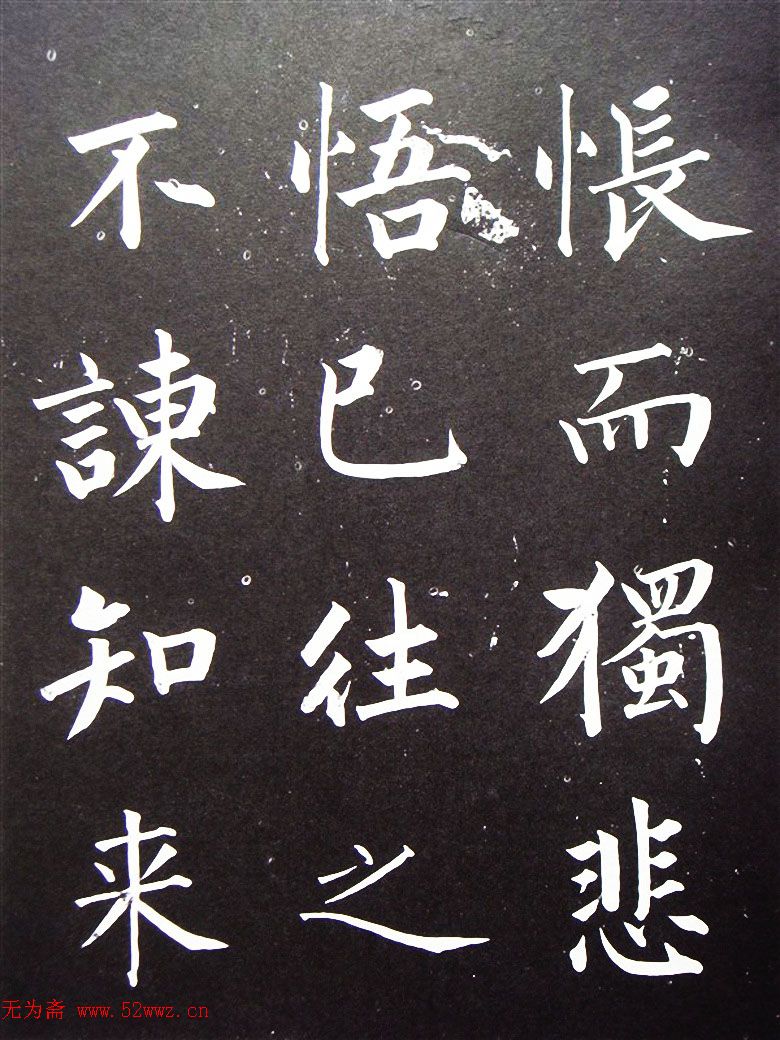 悵而獨悲
悟已往之
不諫知来
无为斋 www.52wwz.cn